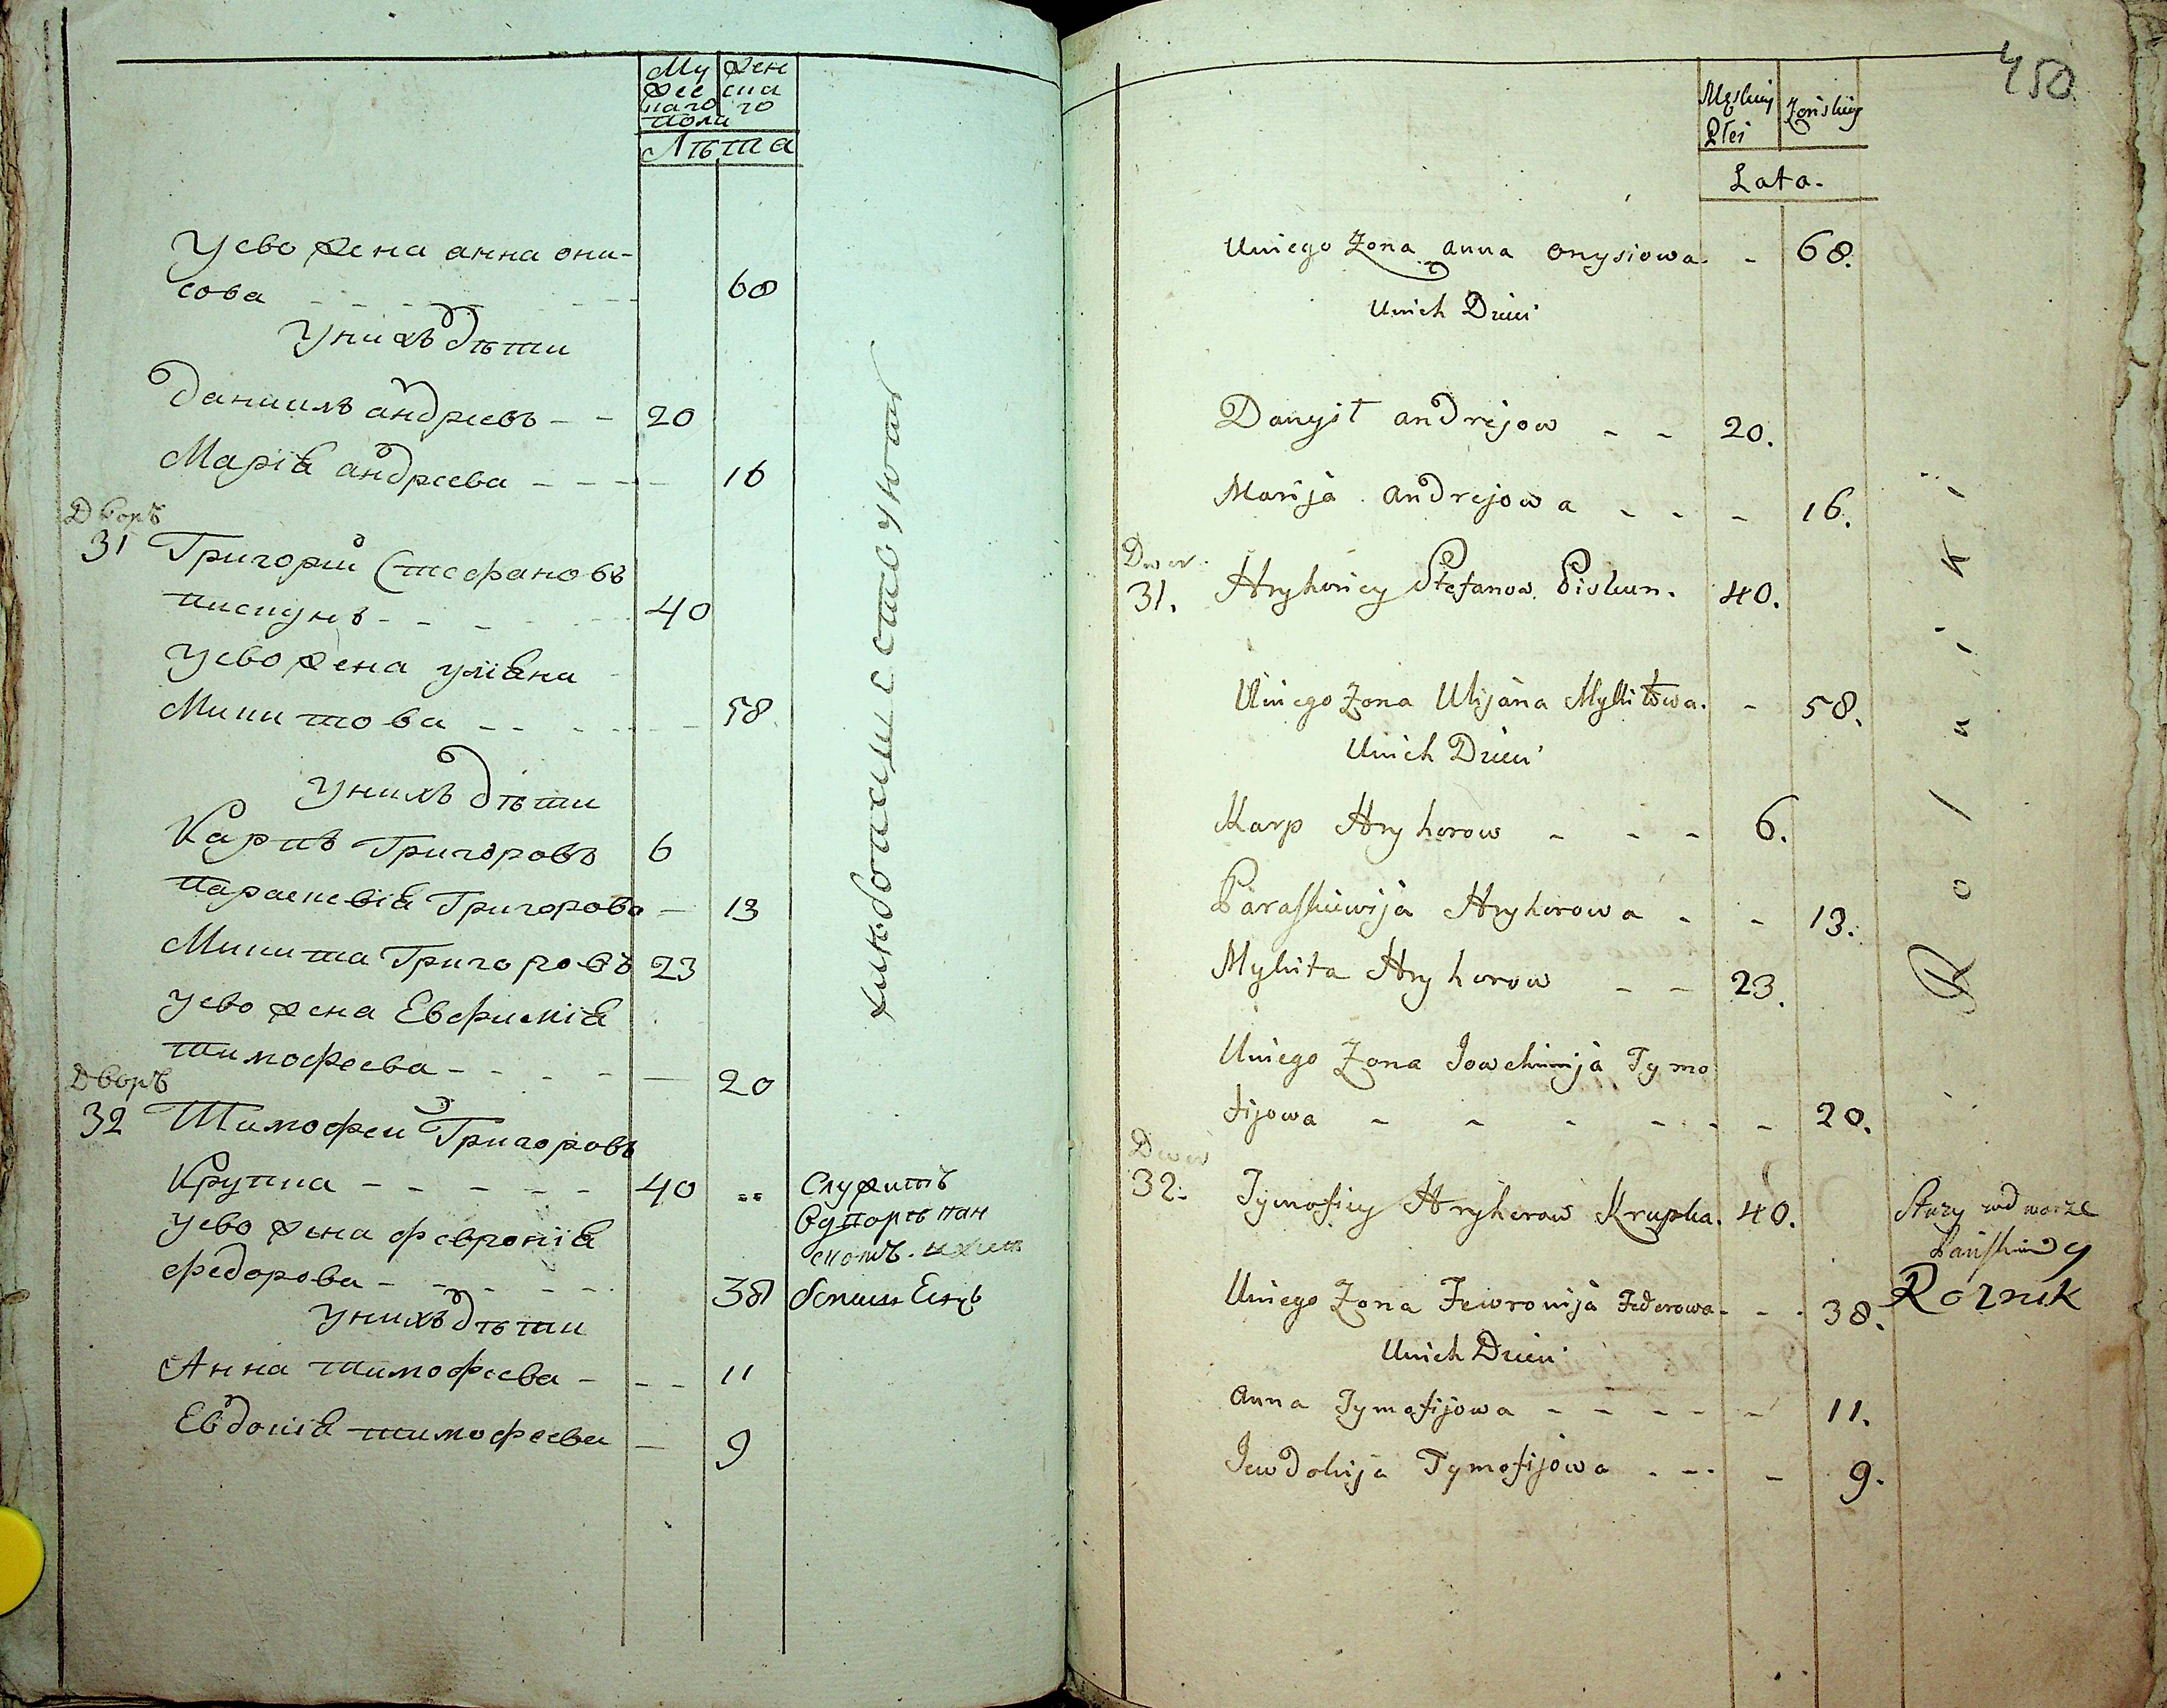 Му
жес
каго
Жен
ска
го
пола
Лѣта
У ево жена анна они-
сова - - - 68
У нихъ дѣти
Даниилъ андреевъ - - 20
Марiя андреева - - - 16
Дворъ
31 Григорий Стефановъ
пискунъ - - - 40
У ево жена улiяна
Микитова - - - 58
У нихъ дѣти
Карпъ Григоровъ 6
параскевiя Григорова - 13
Микита Григоровъ 23
У ево жена Евфимiя
тимофеева - - - 20
Дворъ
32 Тимофей Григоровъ
Крупка - - - 40
У ево жена феврониiя
федорова - - - 38
У нихъ дѣти
Анна тимофеева - - - 11
Евдокiя тимофеева - 9
хлѣбопашествуют
Служитъ
пан
450
Męskiey
Płci
Żeńskiey
Lata.
U niego Żona anna onysiowa. - 68.
U nich Dzieci
Danyił andrejow - - 20.
Marija andrejowa - - - 16.
Dwor
31. Hryhoriey Stefanow Piskun. 40.
U niego Żona Ulijana Mykitowa. - 58.
U nich Dzieci
Karp Hryhorow - - - 6.
Paraskiewija Hryhorowa - - 13.
Mykita Hryhorow - - 23.
U niego Żona Iowchimija Tymo
fijowa - - - - - - 20.
Dwor
32. Tymofiey Hryhorow Krupka. 40.
U niego Żona Fewronija Fedorowa - - 38.
U nich Dzieci
Anna Tymofijowa - - - - - 11.
Jewdokija Tymofijowa - - - - 9.
Rolniki
Służy we dworze
Pańskim y
Rolnik